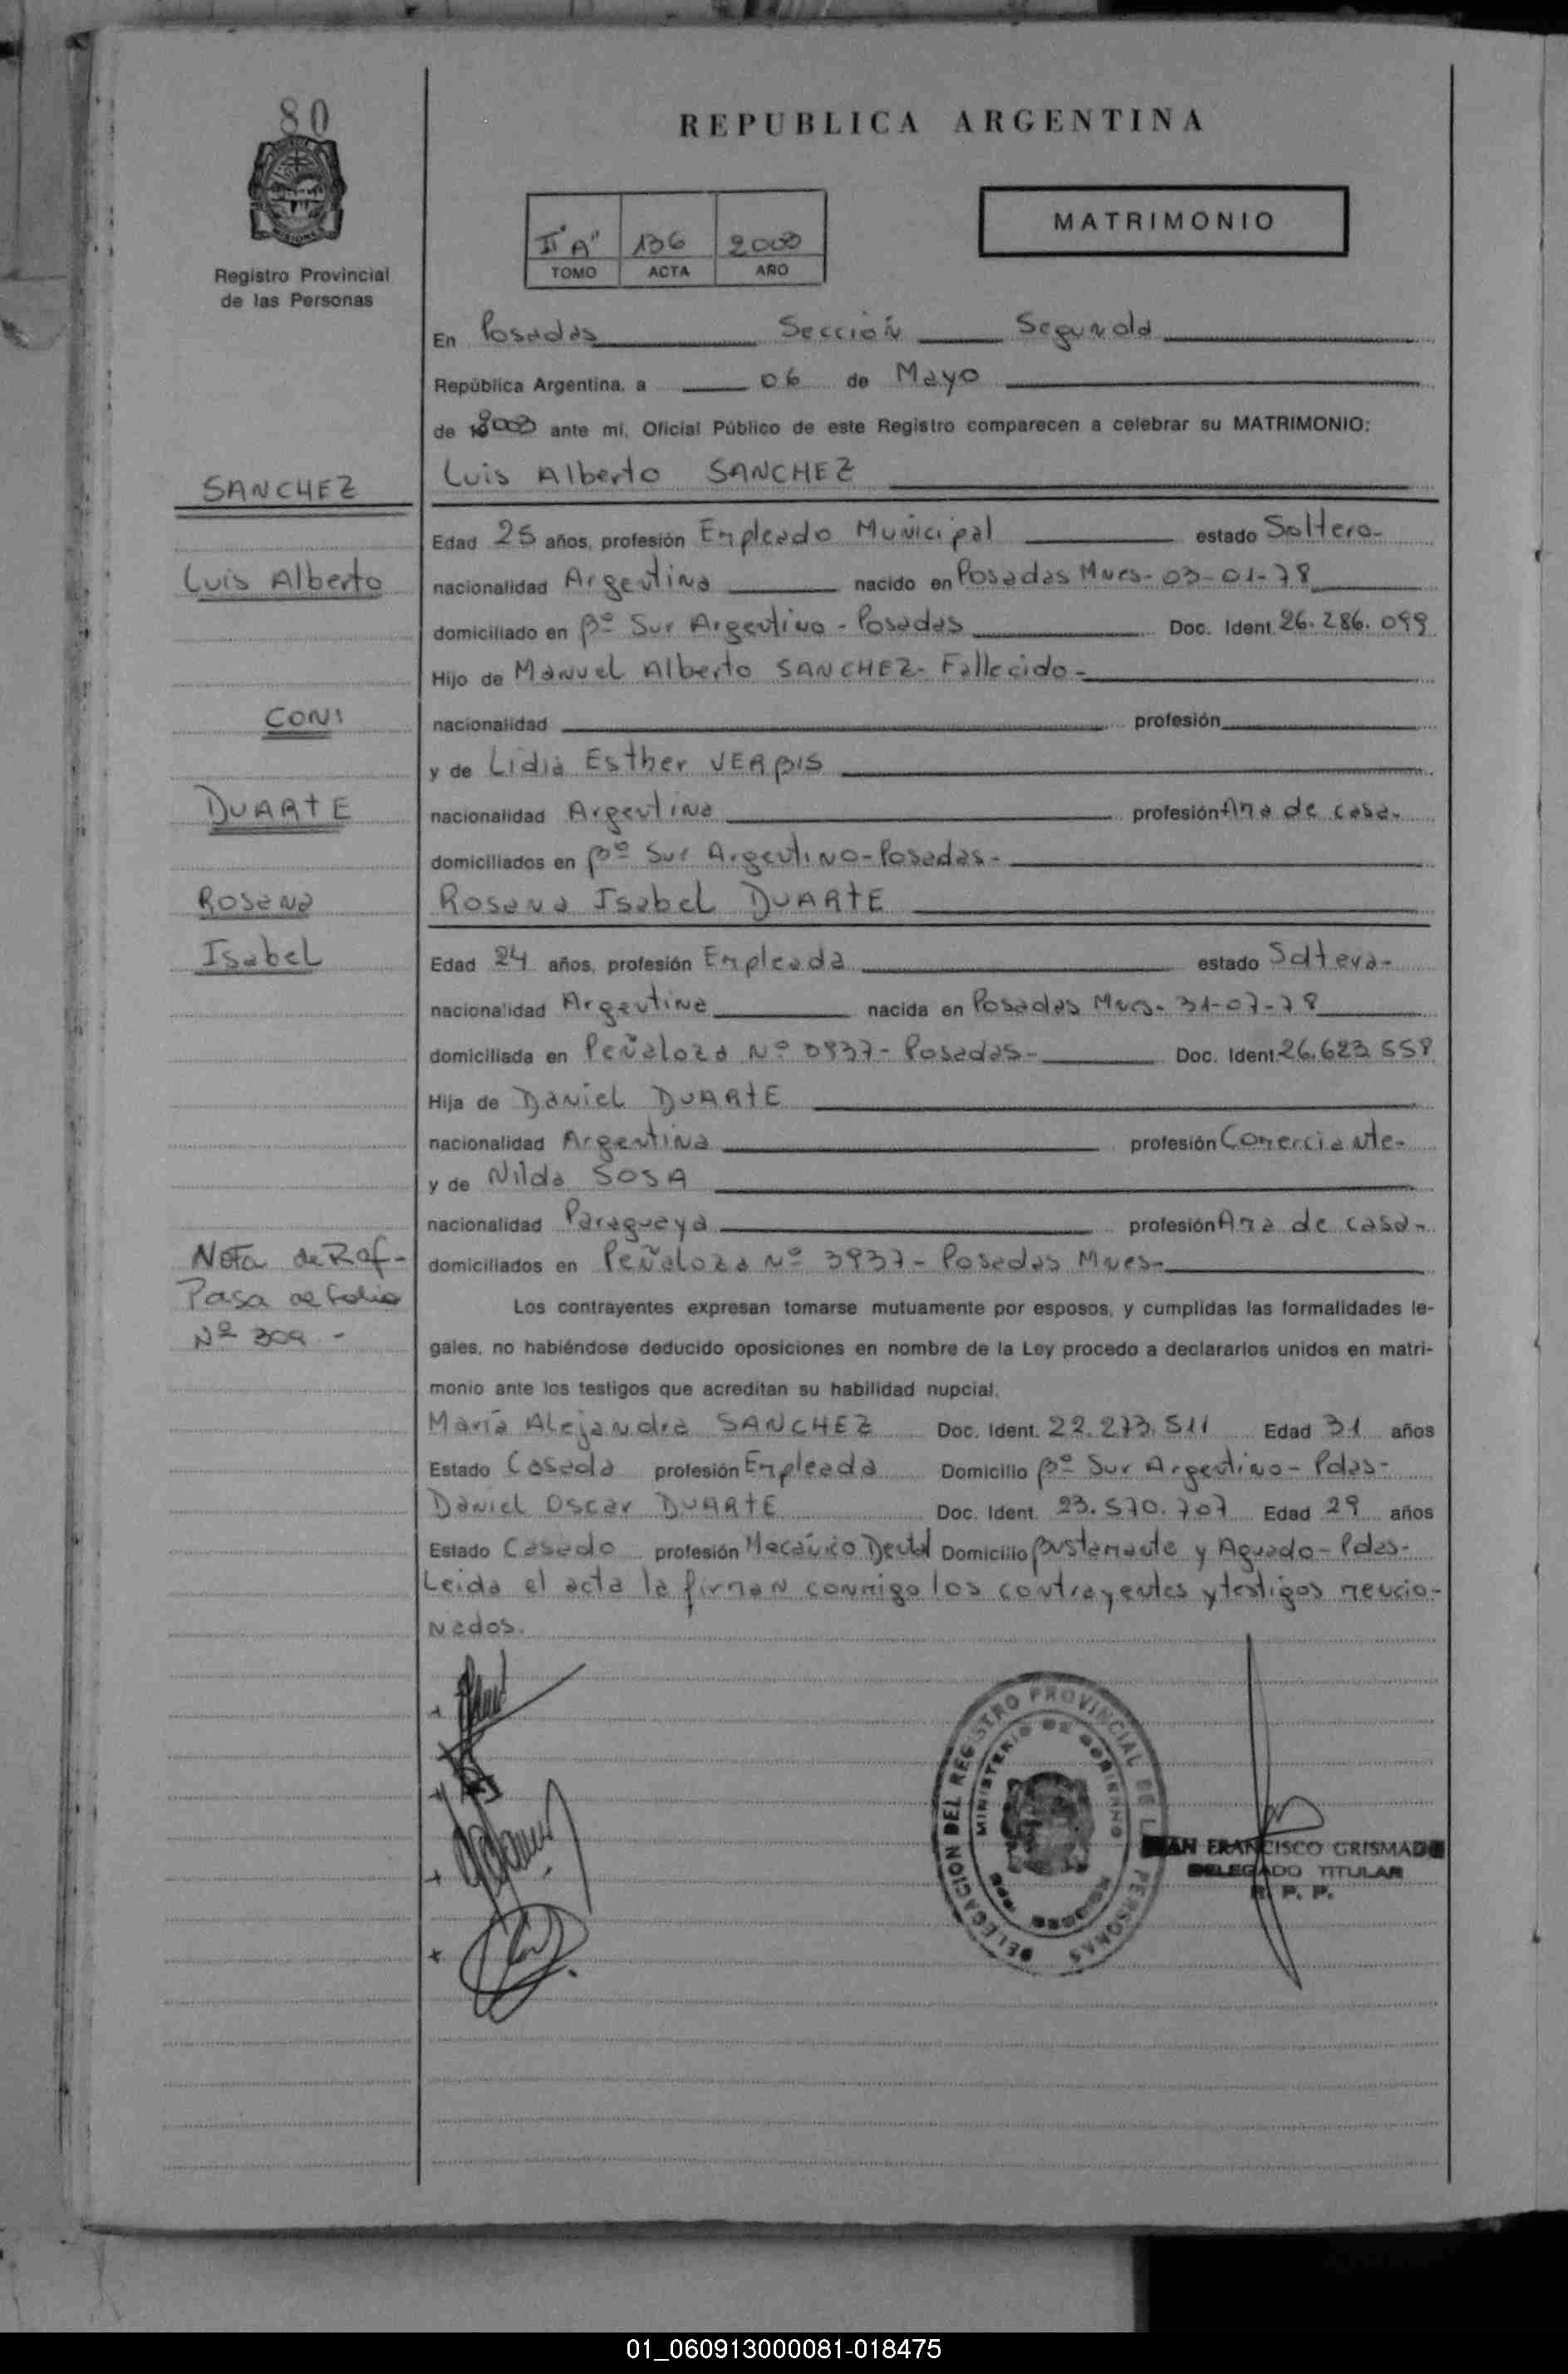 80
REPUBLICA ARGENTINA
MATRIMONIO
II "A" 136 2003
TOMO ACTA AÑO
Registro Provincial
de las Personas
En Posadas Sección Segunda
República Argentina, a 06 de Mayo
de 2003 ante mí, Oficial Público de este Registro comparecen a celebrar su MATRIMONIO:
SANCHEZ
Luis Alberto SANCHEZ
Edad 25 años, profesión Empleado Municipal estado Soltero-
Luis Alberto
nacionalidad Argentina nacido en Posadas Mnes- 03-01-78
domiciliado en Bº Sur Argentino - Posadas Doc. Ident. 26.286.099
Hijo de Manuel Alberto SANCHEZ- Fallecido-
CON:
nacionalidad profesión
y de Lidia Esther VERBIS
DUARTE
nacionalidad Argentina profesión Ama de casa-
domiciliados en Bº Sur Argentino-Posadas-
Rosana
Rosana Isabel DUARTE
Isabel
Edad 24 años, profesión Empleada estado Soltera-
nacionalidad Argentina nacida en Posadas Mnes- 31-07-78
domiciliada en Peñaloza Nº 3937- Posadas- Doc. Ident. 26.623.558
Hija de Daniel DUARTE
nacionalidad Argentina profesión Comerciante-
y de Nilda SOSA
nacionalidad Paraguaya profesión Ama de casa-
Nota de Ref-
Pasa al folio
Nº 309 -
domiciliados en Peñaloza Nº 3937- Posadas Mnes-
Los contrayentes expresan tomarse mutuamente por esposos, y cumplidas las formalidades le-
gales, no habiéndose deducido oposiciones en nombre de la Ley procedo a declararlos unidos en matri-
monio ante los testigos que acreditan su habilidad nupcial.
María Alejandra SANCHEZ Doc. Ident. 22.273.511 Edad 31 años
Estado Casada profesión Empleada Domicilio Bº Sur Argentino- Pdas-
Daniel Oscar DUARTE Doc. Ident. 23.570.707 Edad 29 años
Estado Casado profesión Mecánico Dental Domicilio Bustamante y Aguado- Pdas-
Leida el acta la firman conmigo los contrayentes y testigos mencio-
nados.
DELEGACION DEL REGISTRO PROVINCIAL DE L PERSONAS
MINISTERIO DE GOBIERNO
AN FRANCISCO GRISMADO
DELEGADO TITULAR
R. P. P.
01_060913000081-018475